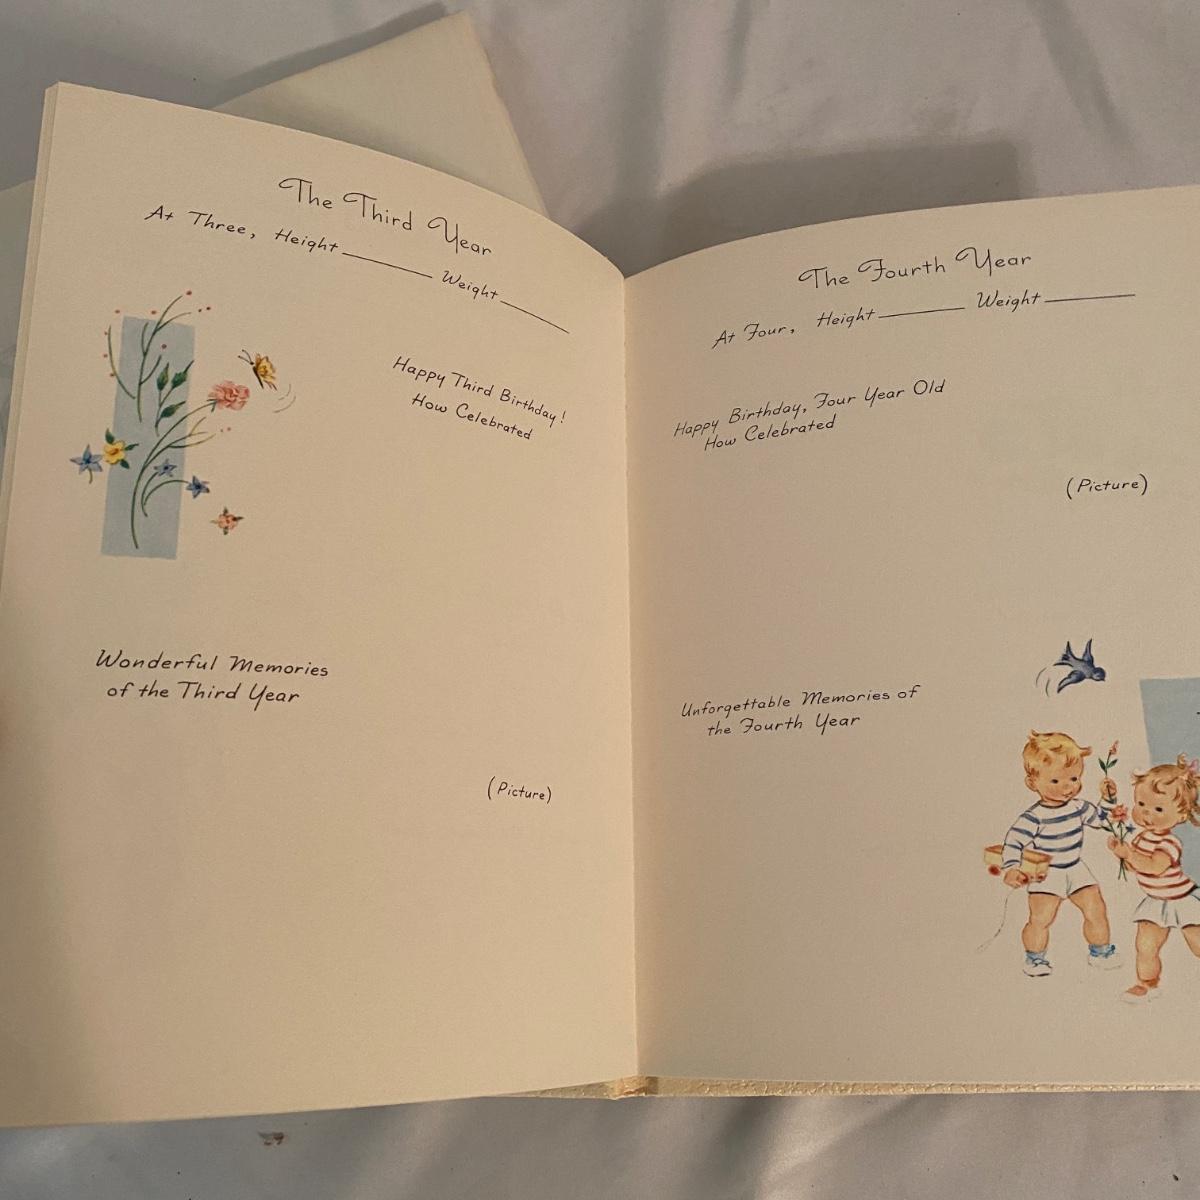 The Third Year
At Three, Height ________ Weight ________
Happy Third Birthday!
How Celebrated
Wonderful Memories
of the Third Year
(Picture)
The Fourth Year
At Four, Height ________ Weight ________
Happy Birthday, Four Year Old
How Celebrated
(Picture)
Unforgettable Memories of
the Fourth Year